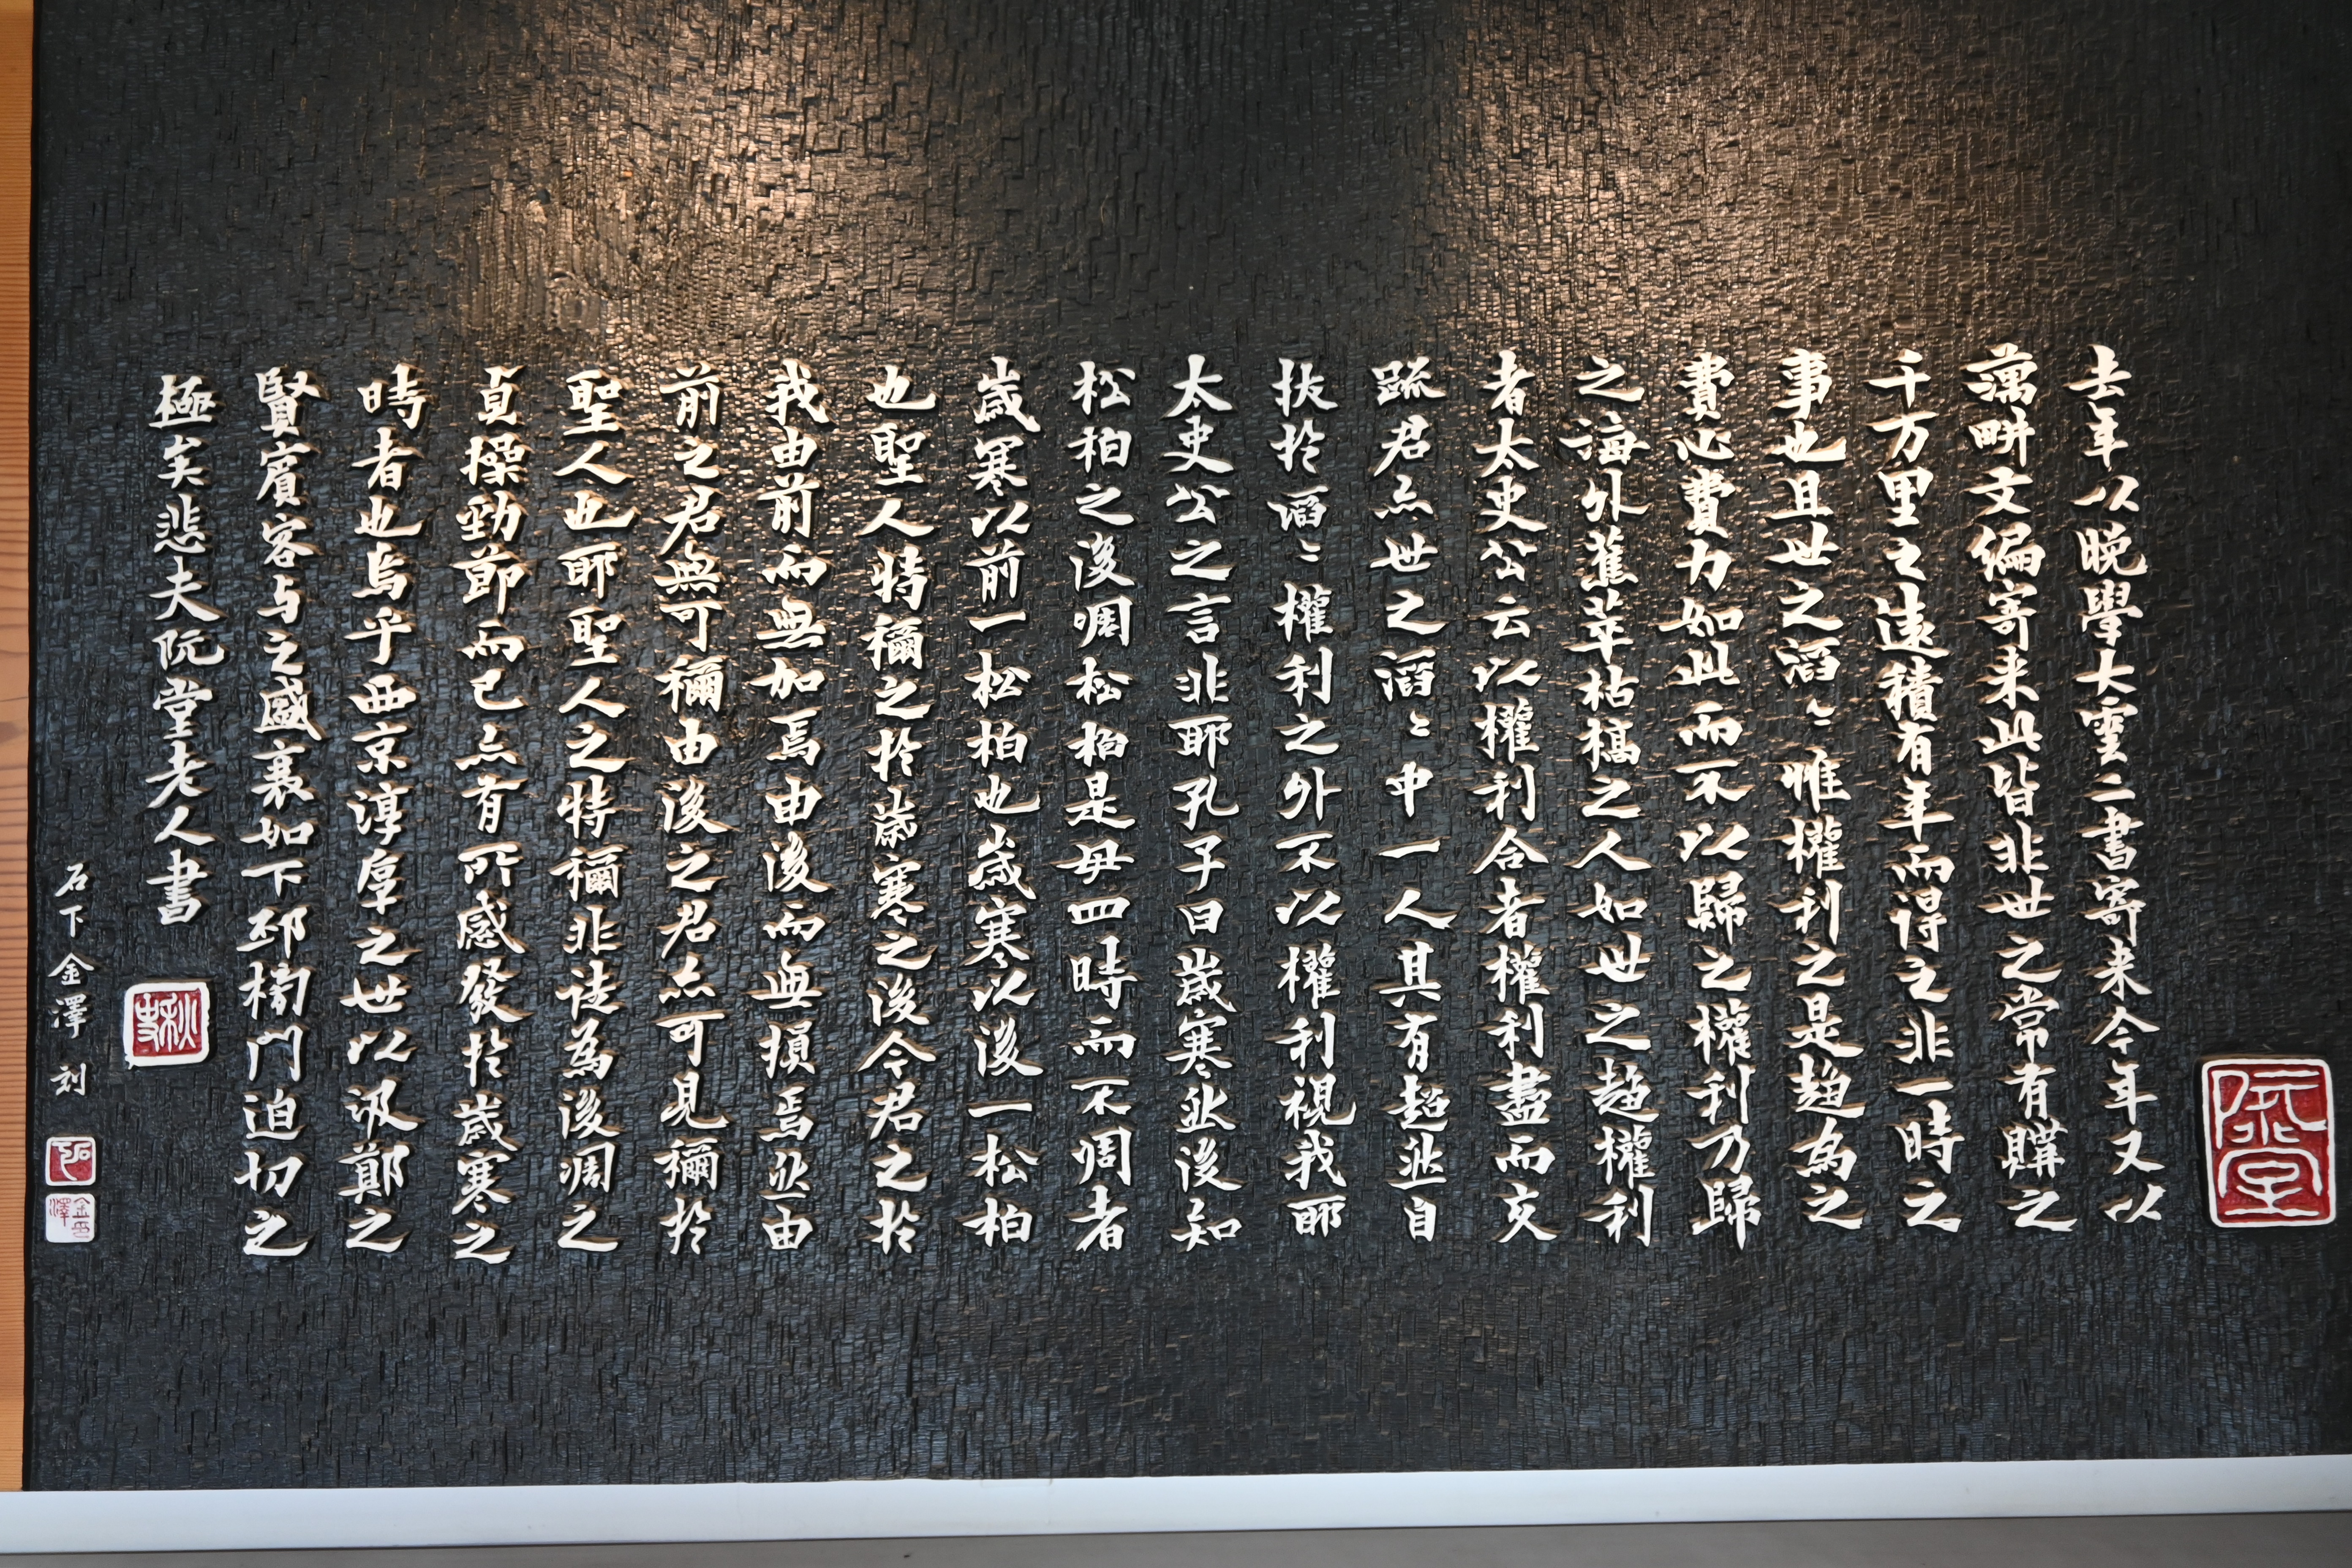 去年以晚學大雲二書寄来今年又以
藕畊文偏寄来此皆非世之常有購之
千万里之遠積有年而得之非一時之
事也且世之滔〻惟權利之是趨為之
費心費力如此而不以歸之權利乃歸
之海外蕉萃枯槁之人如世之趨權利
者太史公云以權利合者權利盡而交
疏君亦世之滔〻中一人其有超然自
扶於滔〻權利之外不以權利視我耶
太史公之言非耶孔子曰歲寒然後知
松柏之後凋松柏是毋四時而不凋者
歲寒以前一松柏也歲寒以後一松柏
也聖人特稱之於歲寒之後今君之於
我由前而無加焉由後而無損焉然由
前之君無可稱由後之君亦可見稱於
聖人也耶聖人之特稱非徒為後凋之
貞操勁節而已亦有所感發於歲寒之
時者也烏乎西京淳厚之世以汲鄭之
賢賓客与之盛衰如下邳榜門迫切之
極矣悲夫阮堂老人書
石下金澤刻
阮堂
秋史
弘
金澤印